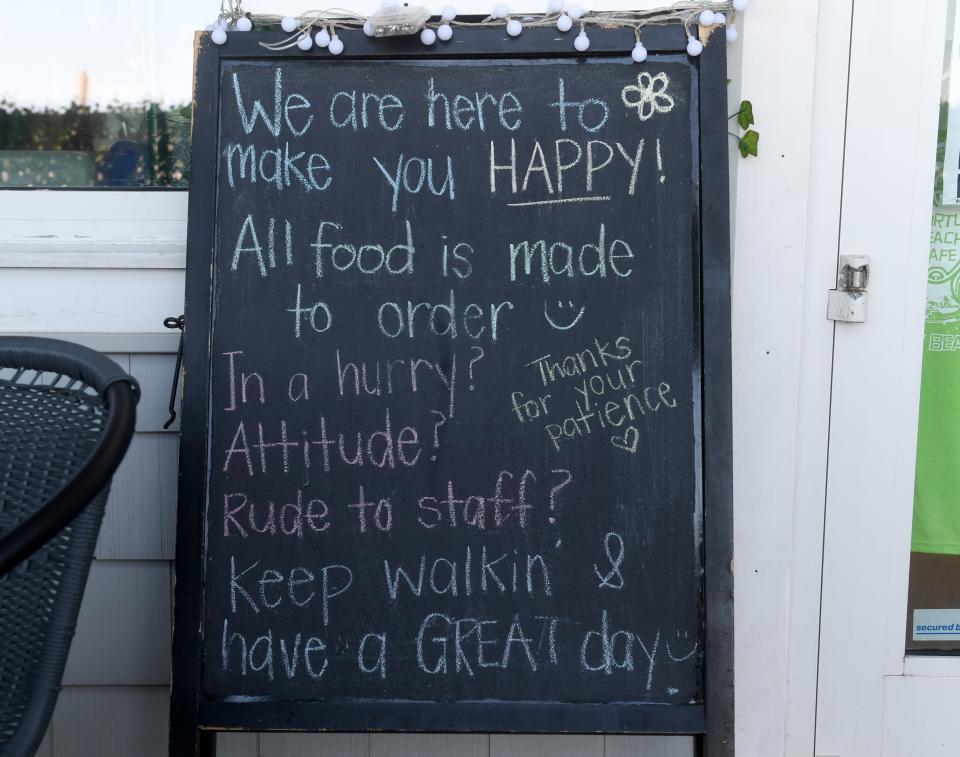 We are here to
make you HAPPY!
All food is made
to order
In a hurry?
Thanks
for your
patience
Attitude?
Rude to staff?
Keep walkin' &
have a GREAT day
EACH
AFE
BEA
secured b